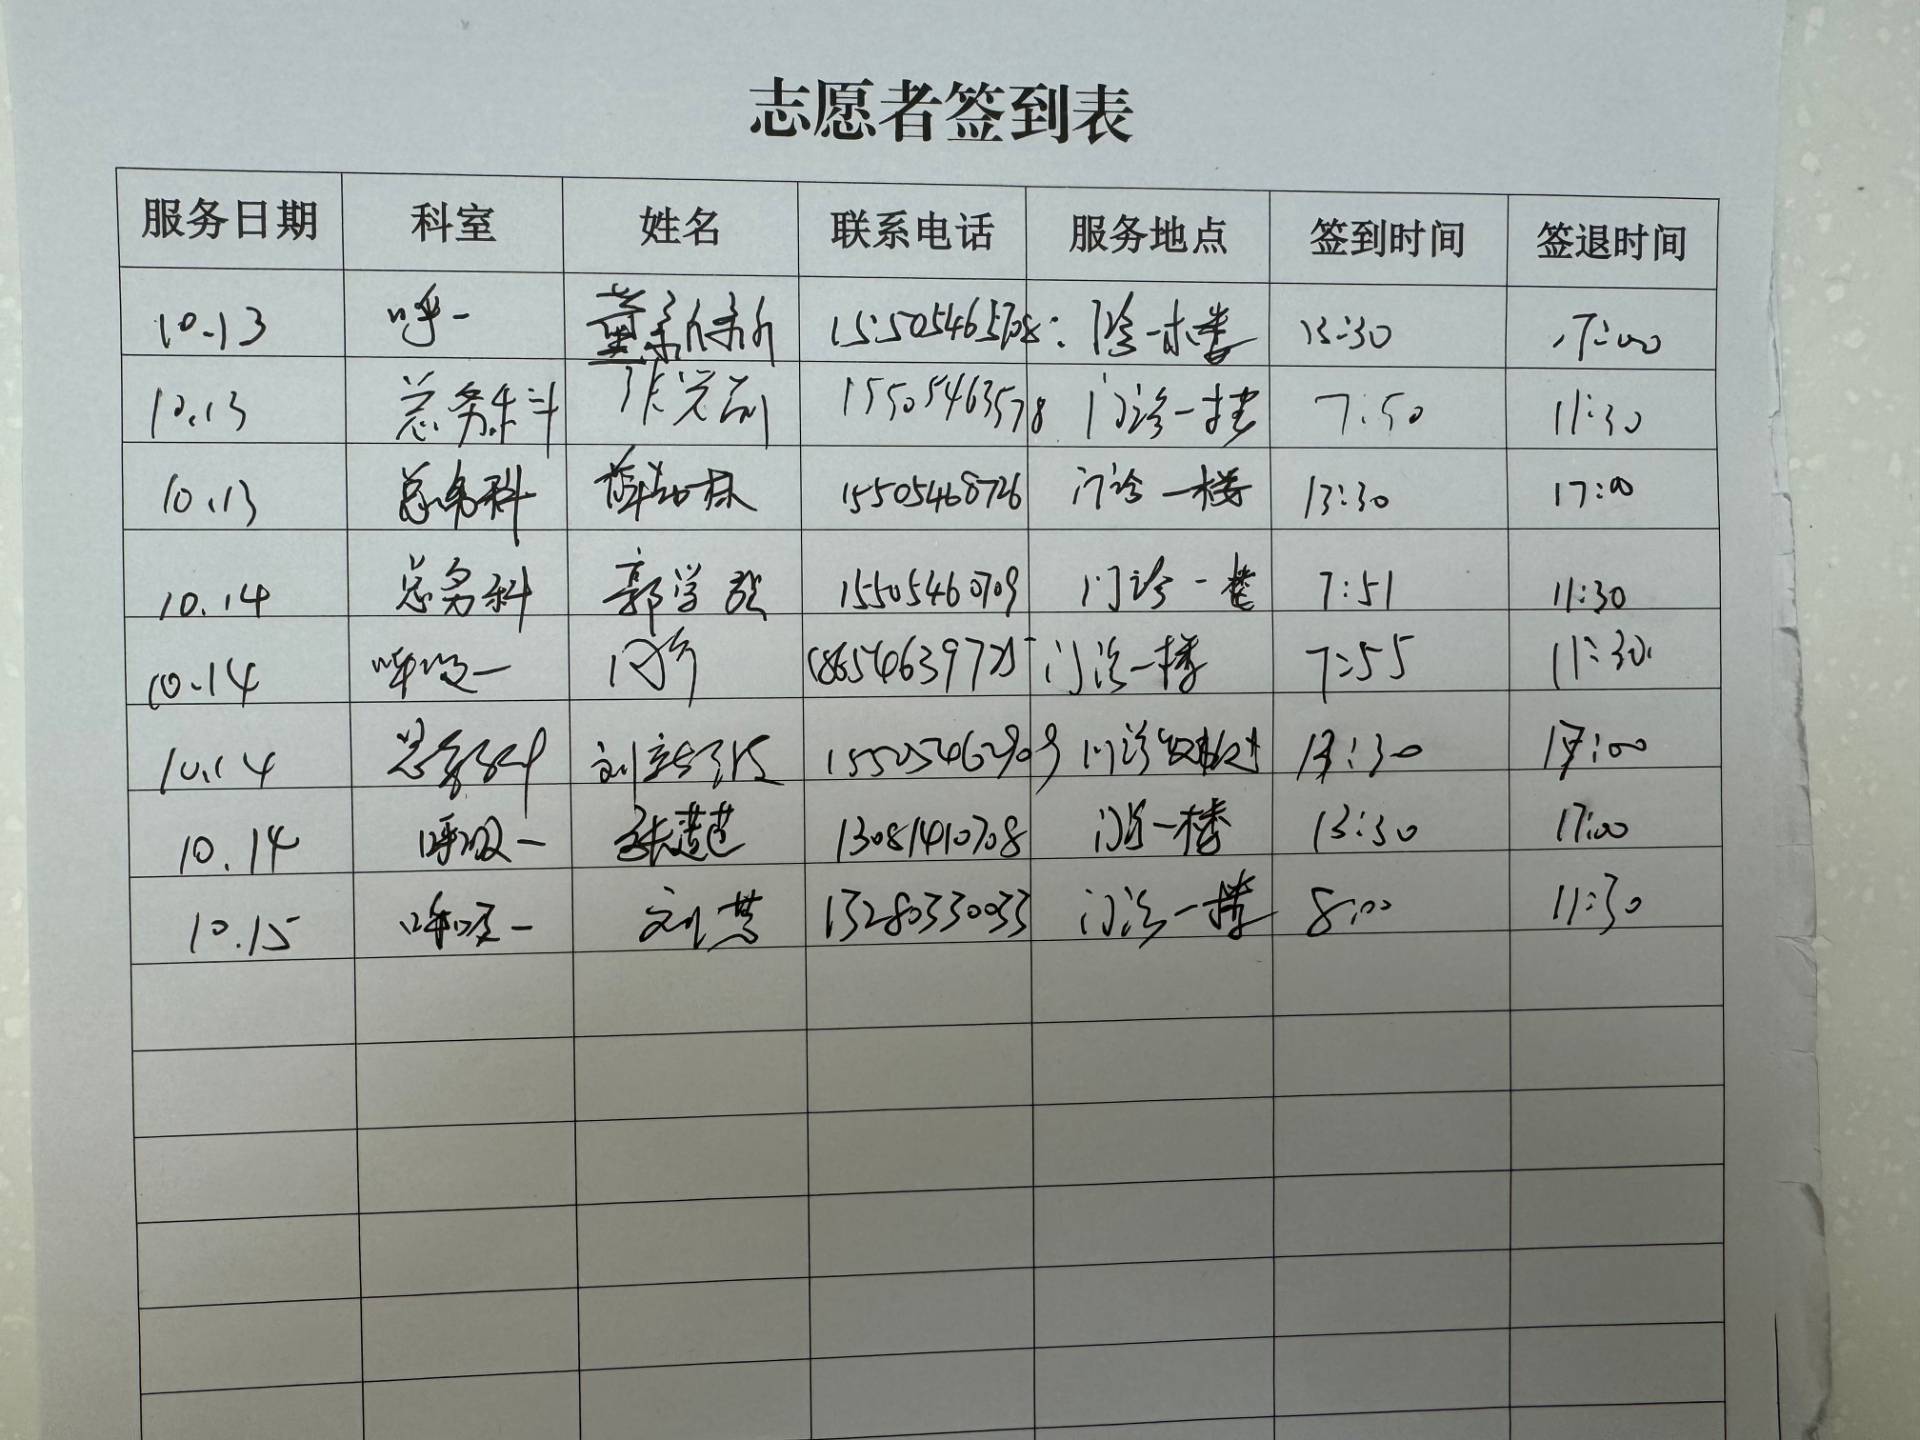 志愿者签到表
服务日期 科室 姓名 联系电话 服务地点 签到时间 签退时间
10.13 呼一 15505465708 门诊一楼 13:30 17:00
10.13 总务科 15505463578 门诊一楼 7:50 11:30
10.13 总务科 15505468726 门诊一楼 13:30 17:00
10.14 总务科 郭学 15505460709 门诊一楼 7:51 11:30
10.14 呼吸一 门诊一楼 7:55 11:30
10.14 总务科 刘 门诊 13:30 17:00
10.14 呼吸一 张 13081410708 门诊一楼 13:30 17:00
10.15 呼吸一 刘慧 13280330033 门诊一楼 8:00 11:30